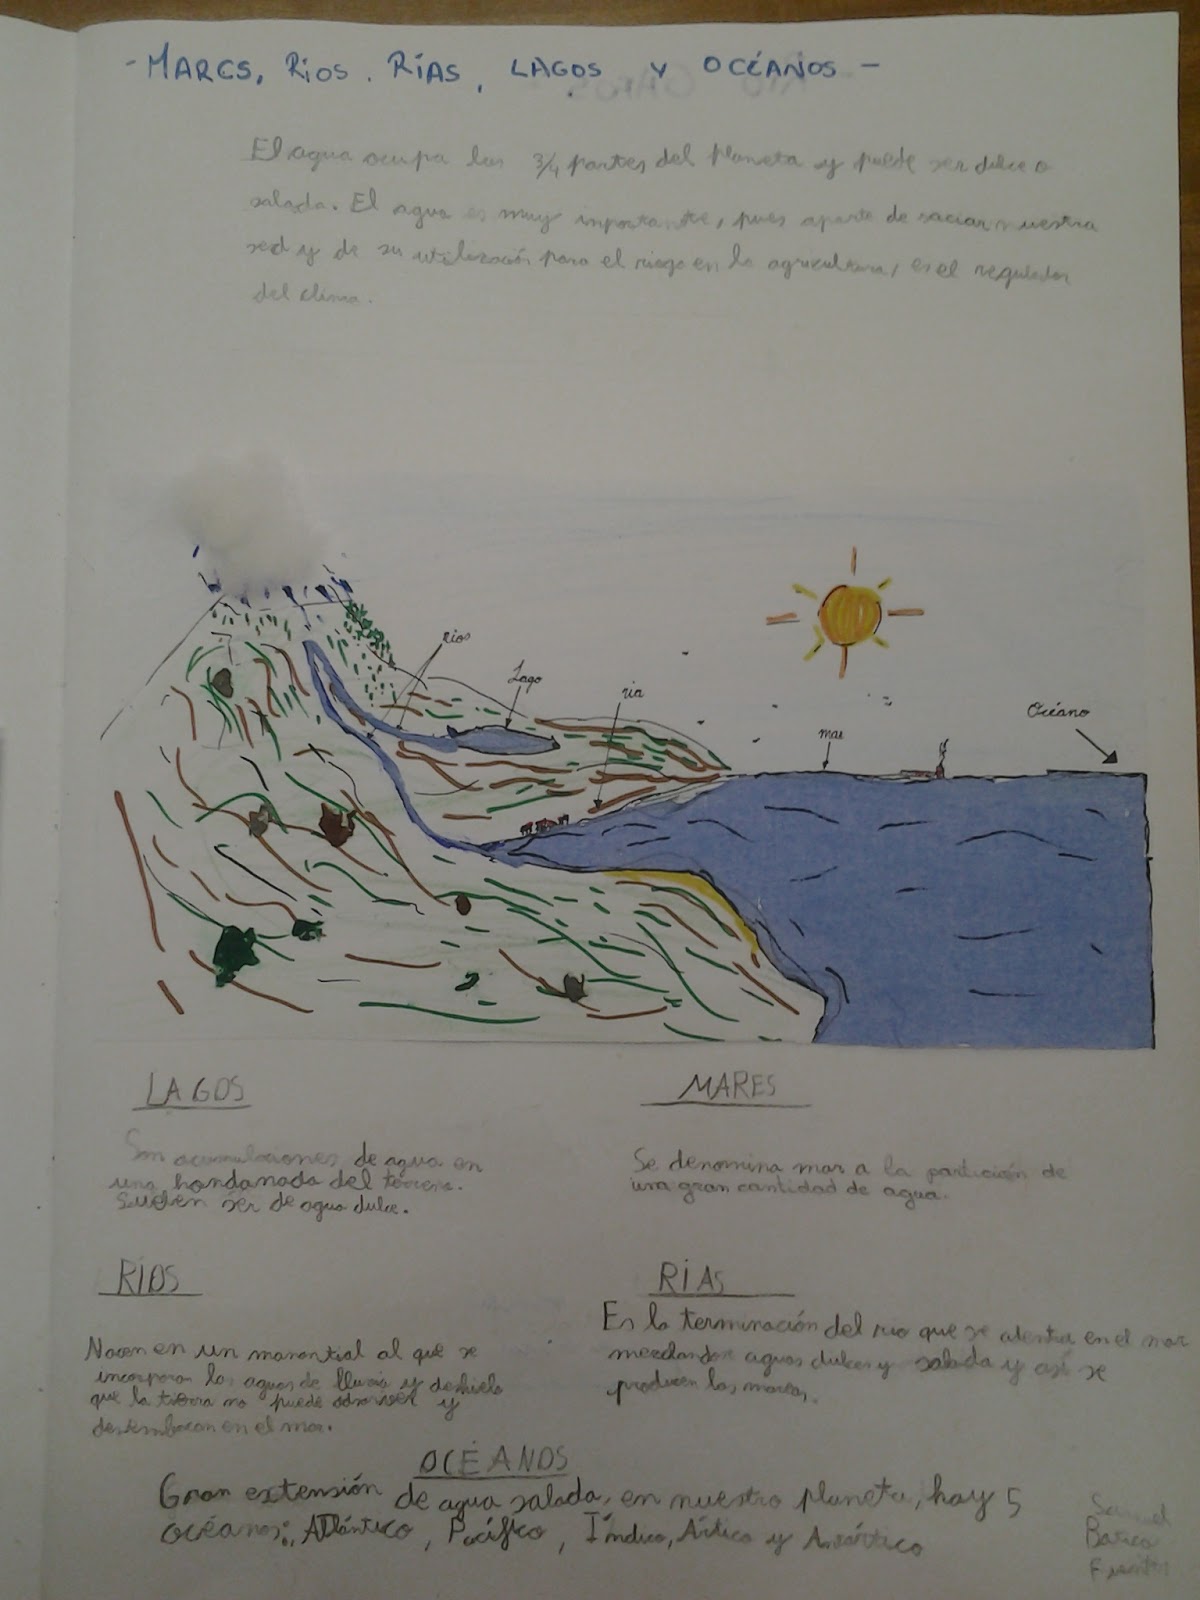 - MARES, RíOS, RÍAS, LAGOS Y OCÉANOS -
El agua ocupa las 3/4 partes del planeta y puede ser dulce o
salada. El agua es muy importante, pues aparte de saciar nuestra
sed y de su utilización para el riego en la agricultura, es el regulador
del clima.
rios
Lago
ria
mar
Océano
LAGOS
Son acumulaciones de agua en
una hondanada del terreno.
Suelen ser de agua dulce.
MARES
Se denomina mar a la partición de
una gran cantidad de agua.
RÍOS
Nacen en un manantial al que se
incorporan las aguas de lluvia y deshielo
que la tierra no puede y
desembocan en el mar.
RÍAS
Es la terminación del rio que se en el mar
mezclandose aguas dulces y salada y así se
producen las mareas.
OCÉANOS
Gran extensión de agua salada, en nuestro planeta, hay 5
océanos: Atlántico, Pacífico, Índico, Ártico y Antártico
Samuel
Barea